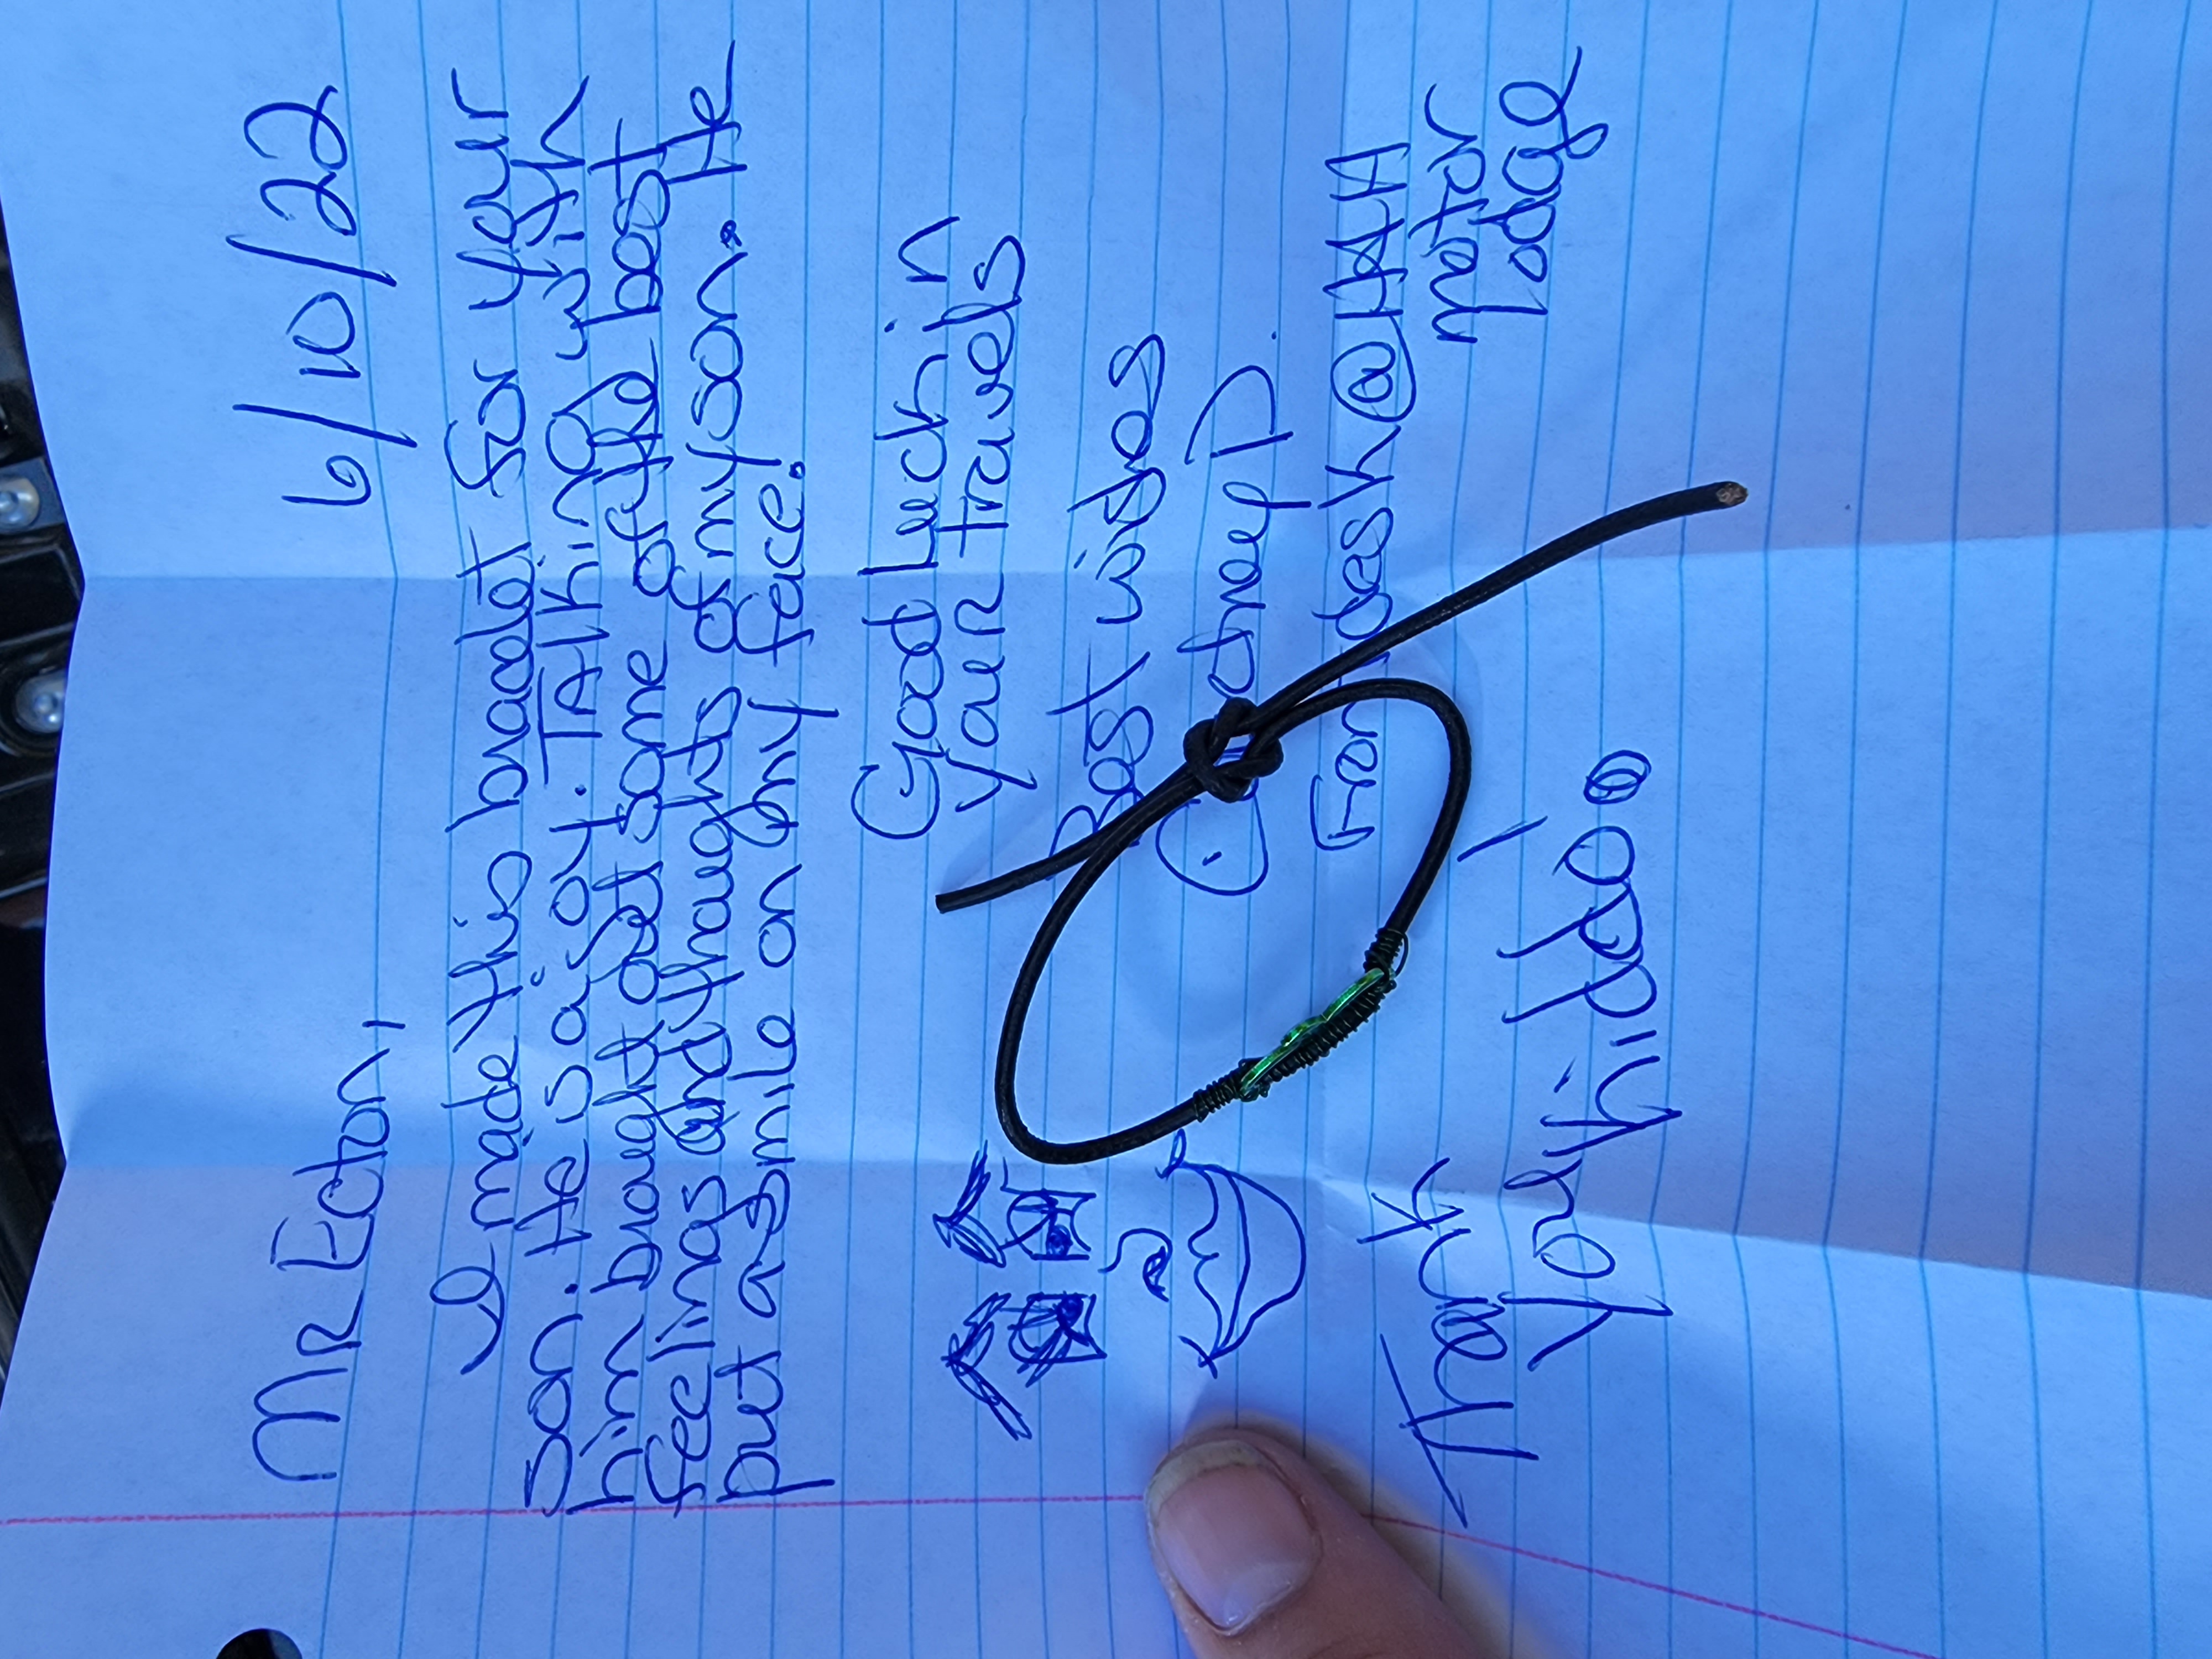 6/10/22
MR Ecton,
I made this bracelet for your
son. He is a joy. TALKING with
him brought out some of the best
feelings and thoughts of my son. He
put a smile on my face.
Good Luck in
your travels
Best wishes
D.
Front desk @ H&H
motor
lodge
Thank
you,